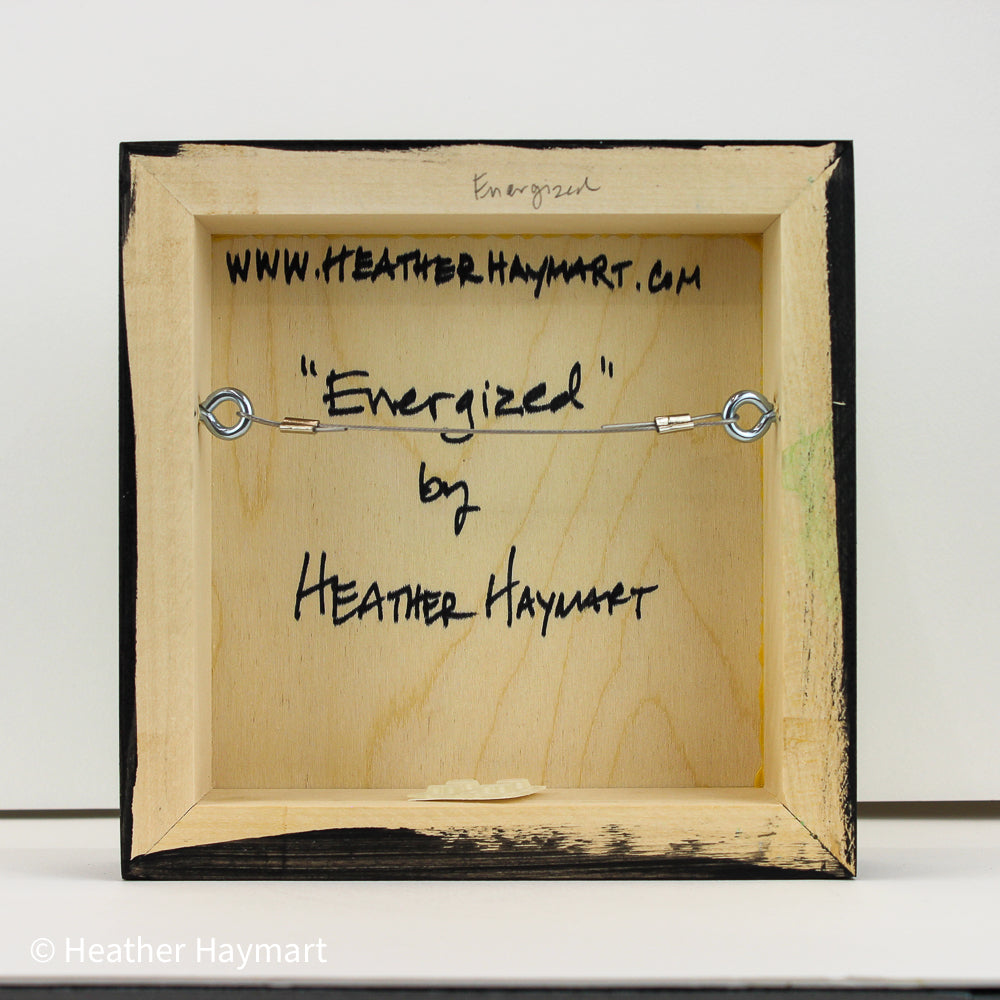 Energized
WWW.HEATHERHAYMART.COM
"Energized"
by
HEATHER HAYMART
© Heather Haymart